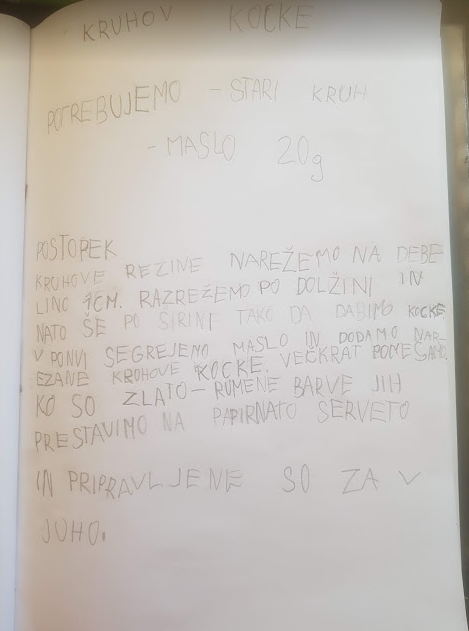 KRUHOV KOCKE
POTREBUJEMO - STARI KRUH
- MASLO 20g
POSTOPEK
KRUHOVE REZINE NAREŽEMO NA DEBE
LINO 1CM. RAZREŽEMO PO DOLŽINI IN
NATO ŠE PO ŠIRINI TAKO DA DABIMO KOCKE
V PONVI SEGREJEMO MASLO IN DODAMO NAR-
EZANE KROHOVE KOCKE. VEČKRAT POMEŠAMO.
KO SO ZLATO - RUMENE BARVE JIH
PRESTAVIMO NA PAPIRNATO SERVETO
IN PRIPRAVLJENE SO ZA V
JUHO.